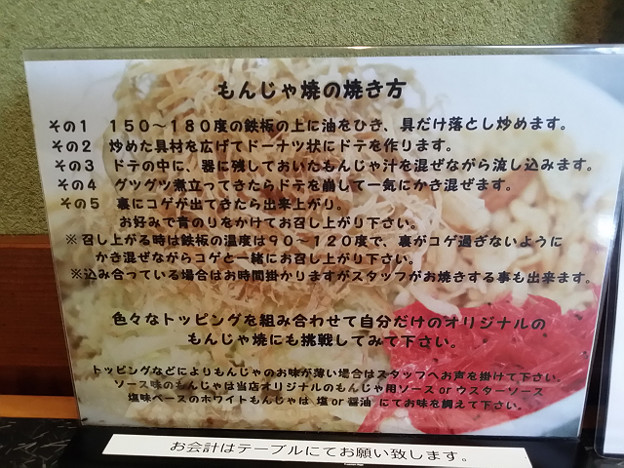 もんじゃ焼の焼き方
その1 150～180度の鉄板の上に油をひき、具だけ落とし炒めます。
その2 炒めた具材を広げてドーナツ状にドテを作ります。
その3 ドテの中に、器に残しておいたもんじゃ汁を混ぜながら流し込みます。
その4 グツグツ煮立ってきたらドテを崩して一気にかき混ぜます。
その5 裏にコゲが出てきたら出来上がり。
お好みで青のりをかけてお召し上がり下さい。
※召し上がる時は鉄板の温度は90～120度で、裏がコゲ過ぎないように
かき混ぜながらコゲと一緒にお召し上がり下さい。
※込み合っている場合はお時間掛かりますがスタッフがお焼きする事も出来ます。
色々なトッピングを組み合わせて自分だけのオリジナルの
もんじゃ焼にも挑戦してみて下さい。
トッピングなどによりもんじゃのお味が薄い場合はスタッフへお声を掛けて下さい。
ソース味のもんじゃは当店オリジナルのもんじゃ用ソースorウスターソース
塩味ベースのホワイトもんじゃは 塩or醤油 にてお味を調えて下さい。
お会計はテーブルにてお願い致します。